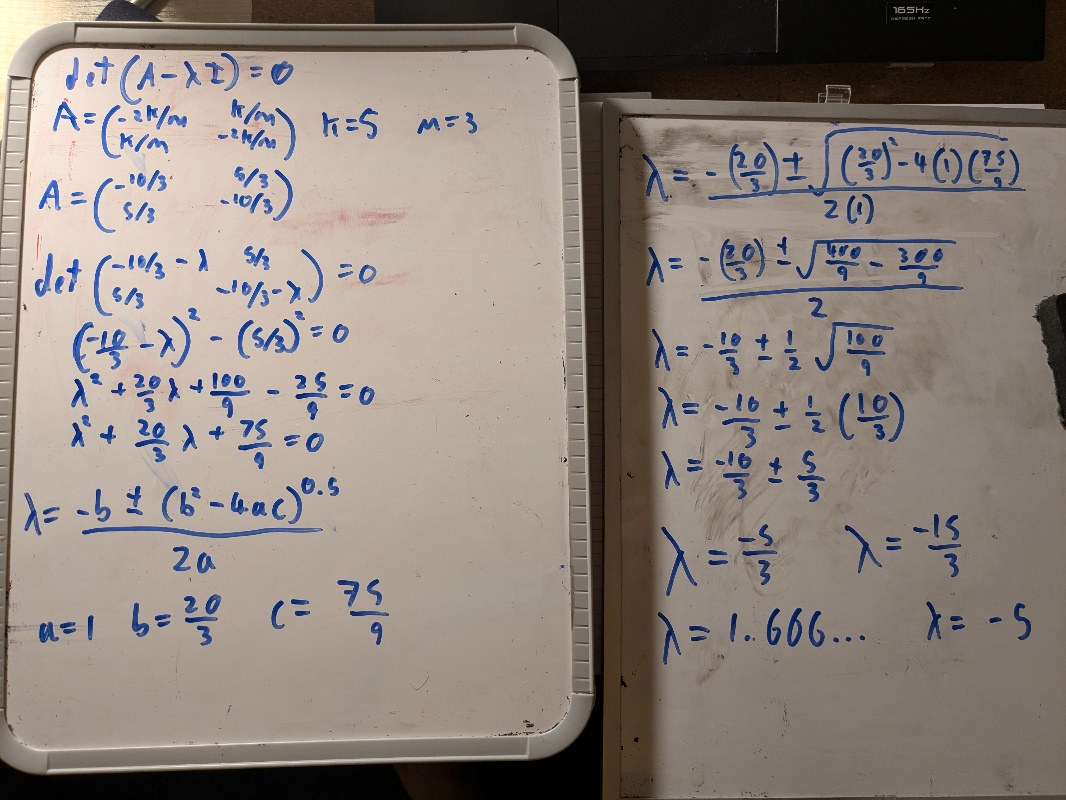 165Hz
REFRESH RATE
det (A - λI) = 0
A = (-2k/m k/m
k/m -2k/m) k=5 m=3
A = (-10/3 5/3
5/3 -10/3)
det (-10/3 - λ 5/3
5/3 -10/3 - λ) = 0
(-10/3 - λ)² - (5/3)² = 0
λ² + 20/3 λ + 100/9 - 25/9 = 0
λ² + 20/3 λ + 75/9 = 0
λ = -b ± (b² - 4ac)^0.5
2a
a=1 b= 20/3 c= 75/9
λ = -(20/3) ± √((20/3)² - 4(1)(75/9))
2(1)
λ = -(20/3) ± √(400/9 - 300/9)
2
λ = -10/3 ± 1/2 √(100/9)
λ = -10/3 ± 1/2 (10/3)
λ = -10/3 ± 5/3
λ = -5/3 λ = -15/3
λ = 1.666... λ = -5